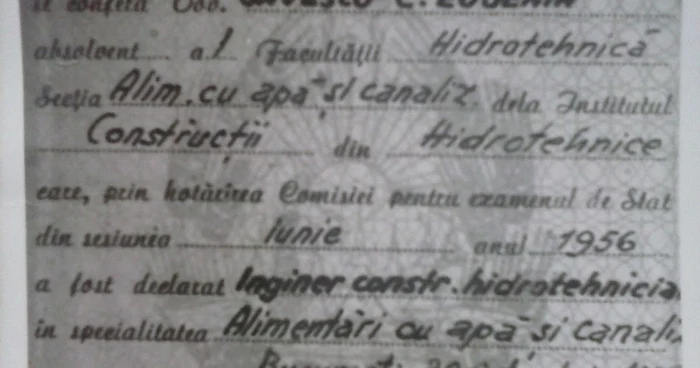 absolvent a l Facultății Hidrotehnică
Secția Alim. cu apă și canaliz. dela Institutul
Construcții din Hidrotehnice
care, prin hotărîrea Comisiei pentru examenul de Stat
din sesiunia iunie anul 1956
a fost declarat Inginer constr. hidrotehnicia
în specialitatea Alimentări cu apă și canaliz